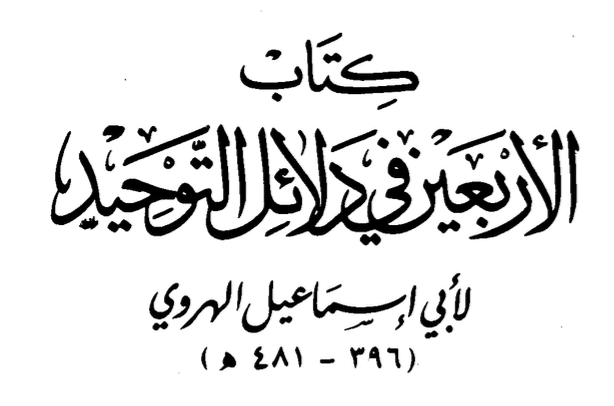 كِتَاب
الأَرْبَعِين فِي دَلَائِل التَّوْحِيد
لأبي إسمَاعيل الهروي
(٣٩٦ - ٤٨١ ه)